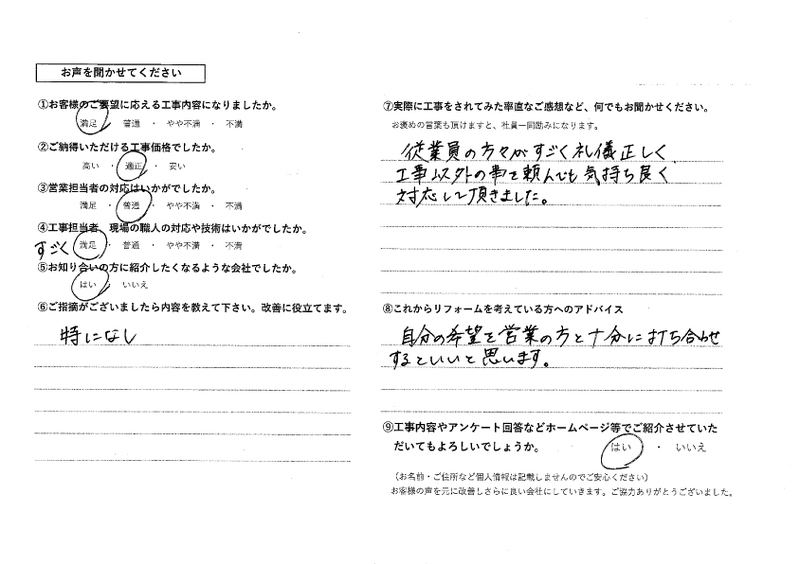 お声を聞かせてください
①お客様のご要望に応える工事内容になりましたか。
満足 ・ 普通 ・ やや不満 ・ 不満
②ご納得いただける工事価格でしたか。
高い ・ 適正 ・ 安い
③営業担当者の対応はいかがでしたか。
満足 ・ 普通 ・ やや不満 ・ 不満
④工事担当者、現場の職人の対応や技術はいかがでしたか。
すごく 満足 ・ 普通 ・ やや不満 ・ 不満
⑤お知り合いの方に紹介したくなるような会社でしたか。
はい ・ いいえ
⑥ご指摘がございましたら内容を教えて下さい。改善に役立てます。
特になし
⑦実際に工事をされてみた率直なご感想など、何でもお聞かせください。
お褒めの言葉も頂けますと、社員一同励みになります。
従業員の方々がすごく礼儀正しく、
工事以外の事を頼んでも気持ち良く
対応して頂きました。
⑧これからリフォームを考えている方へのアドバイス
自分の希望を営業の方と十分に打ち合わせ
するといいと思います。
⑨工事内容やアンケート回答などホームページ等でご紹介させていた
だいてもよろしいでしょうか。 はい ・ いいえ
（お名前・ご住所など個人情報は記載しませんのでご安心ください）
お客様の声を元に改善しさらに良い会社にしていきます。ご協力ありがとうございました。